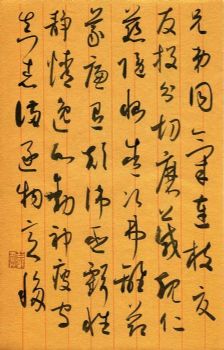 兄弟同氣連枝交
友投分切磨箴規仁
慈隱惻造次弗離節
義廉退顛沛匪虧性
靜情逸心動神疲守
真志滿逐物意移